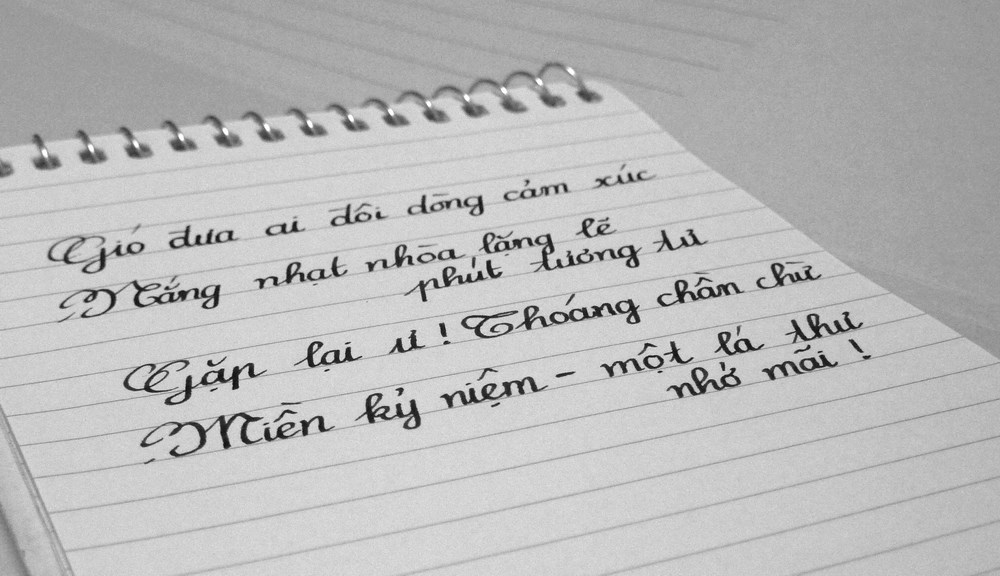 Gió đưa ai dôi dòng cảm xúc
Nắng nhạt nhòa lặng lẽ
phút tương tư
Gặp lại ư! Thoáng chần chừ
Miền kỷ niệm - một lá thư
nhớ mãi!